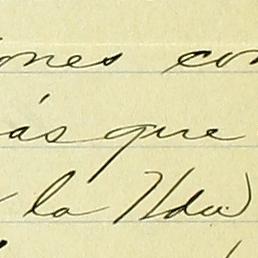 ones con
ás que
la Hda